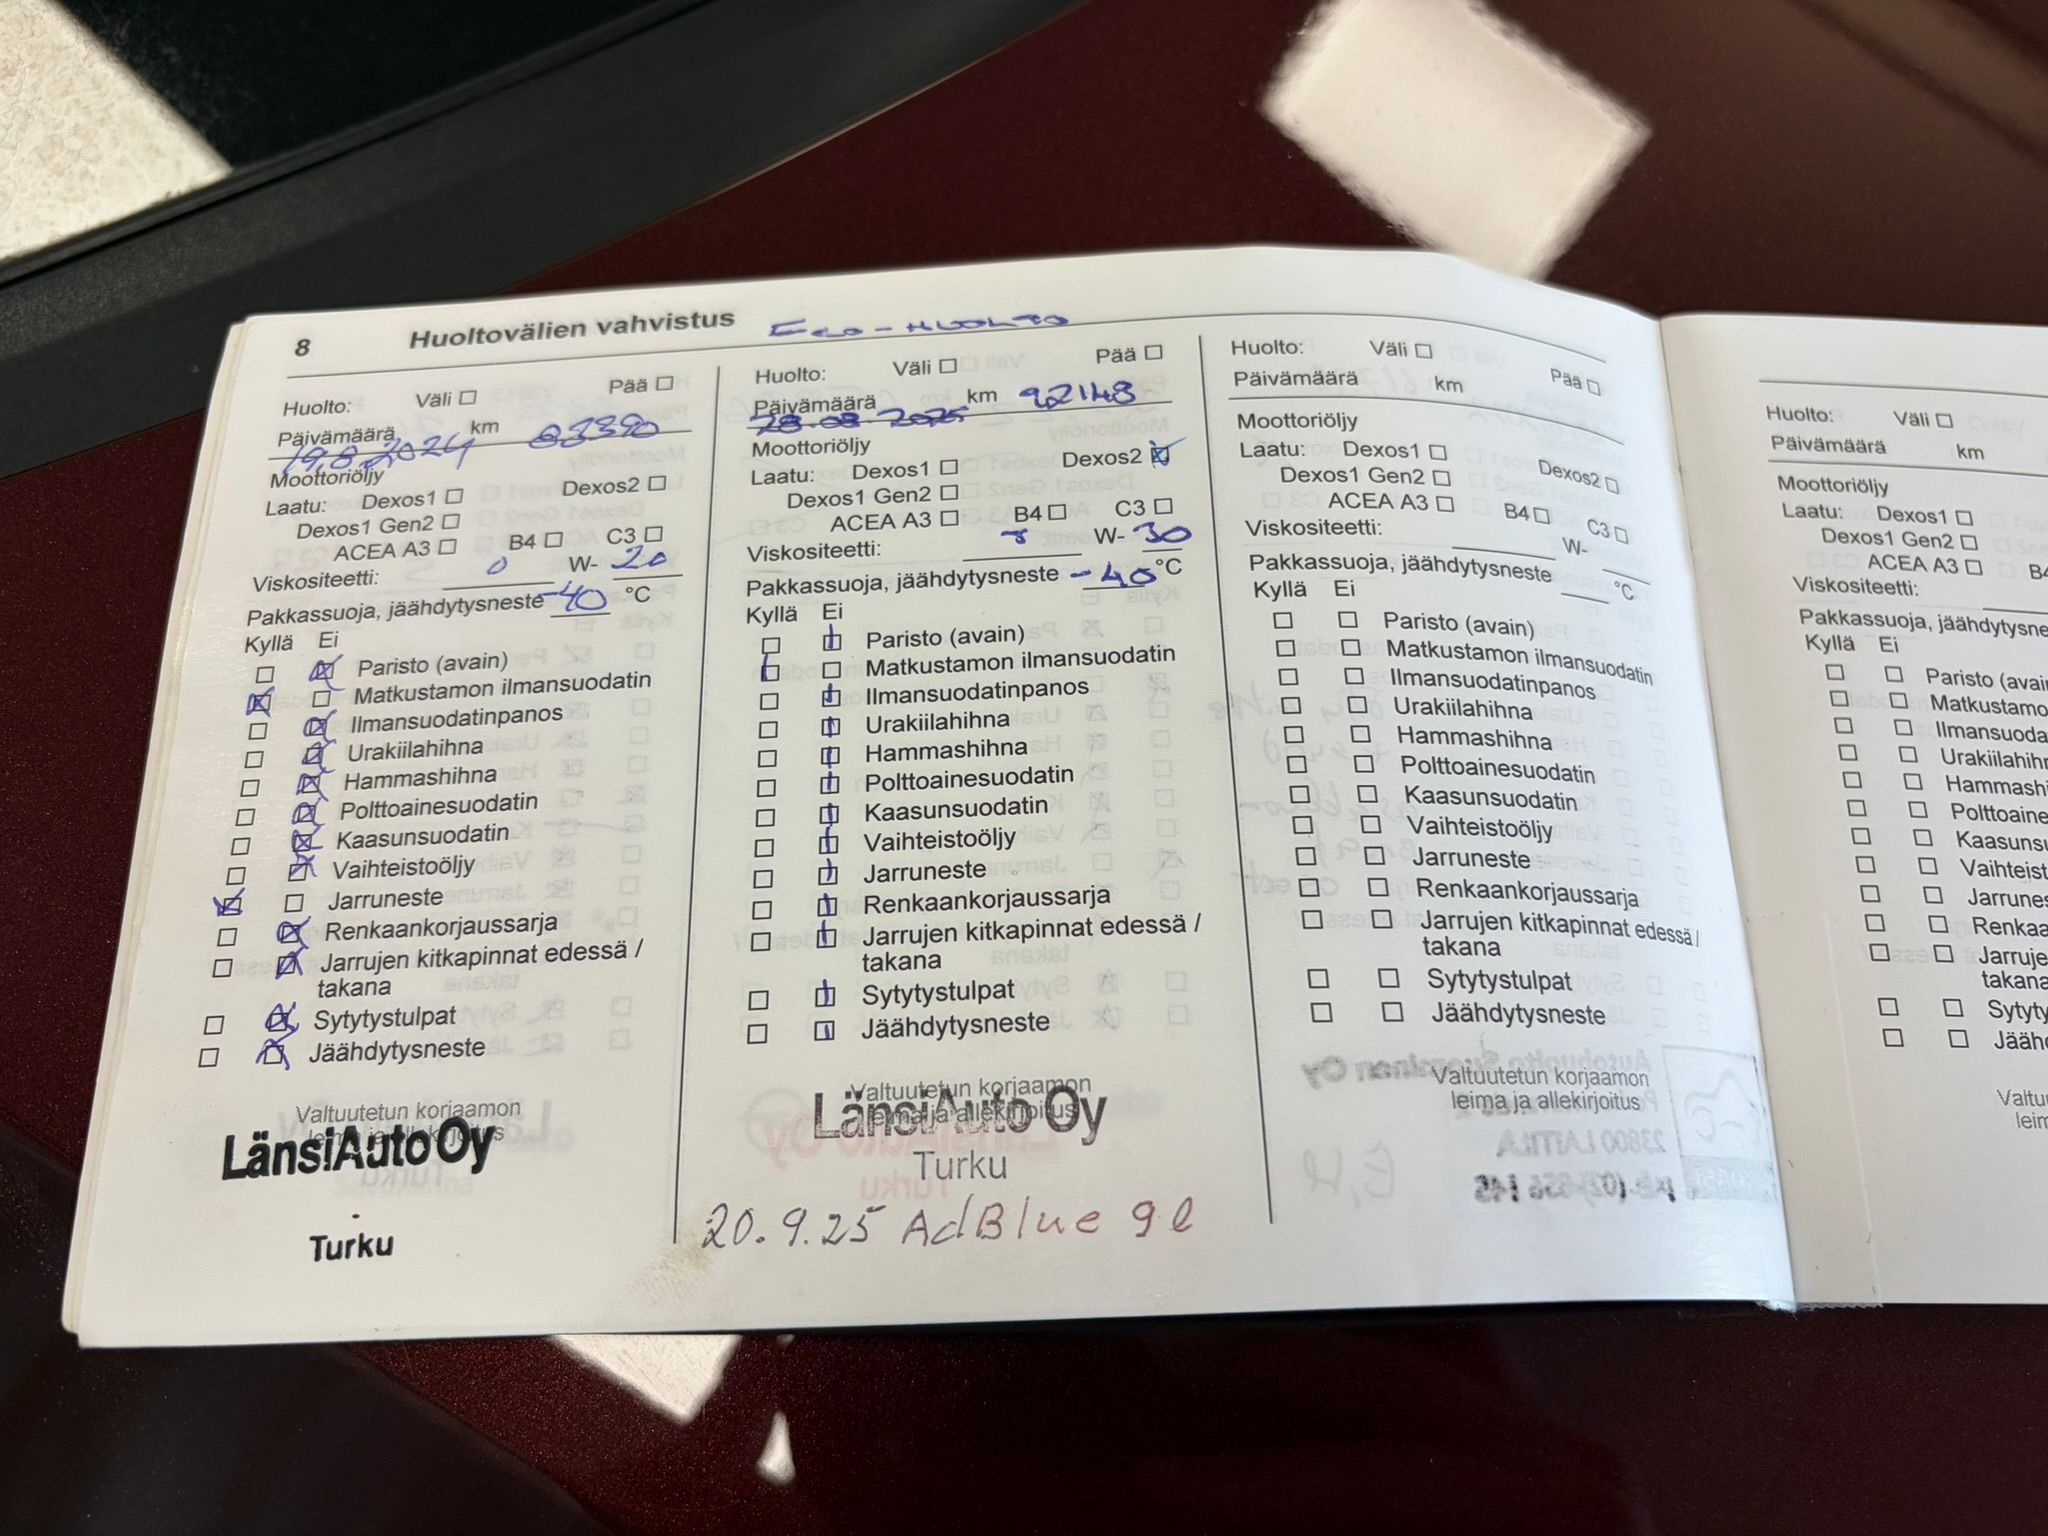 8 Huoltovälien vahvistus Eco-HUOLTO
Huolto: Väli ☐ Pää ☐
Päivämäärä km
19.8.2024 83390
Moottoriöljy
Laatu: Dexos1 ☐ Dexos2 ☐
Dexos1 Gen2 ☐
ACEA A3 ☐ B4 ☐ C3 ☐
Viskositeetti: 0 W- 20
Pakkassuoja, jäähdytysneste -40 °C
Kyllä Ei
☐ ☒ Paristo (avain)
☒ ☐ Matkustamon ilmansuodatin
☐ ☒ Ilmansuodatinpanos
☐ ☒ Urakiilahihna
☐ ☒ Hammashihna
☐ ☒ Polttoainesuodatin
☐ ☒ Kaasunsuodatin
☐ ☒ Vaihteistoöljy
☒ ☐ Jarruneste
☐ ☒ Renkaankorjaussarja
☐ ☒ Jarrujen kitkapinnat edessä /
takana
☐ ☒ Sytytystulpat
☐ ☒ Jäähdytysneste
Valtuutetun korjaamon
leima ja allekirjoitus
LänsiAuto Oy
Turku
Huolto: Väli ☐ Pää ☐
Päivämäärä km 92148
28.08.2025
Moottoriöljy
Laatu: Dexos1 ☐ Dexos2 ☒
Dexos1 Gen2 ☐
ACEA A3 ☐ B4 ☐ C3 ☐
Viskositeetti: W- 30
Pakkassuoja, jäähdytysneste -40 °C
Kyllä Ei
☐ ☒ Paristo (avain)
☒ ☐ Matkustamon ilmansuodatin
☐ ☒ Ilmansuodatinpanos
☐ ☒ Urakiilahihna
☐ ☒ Hammashihna
☐ ☒ Polttoainesuodatin
☐ ☒ Kaasunsuodatin
☐ ☒ Vaihteistoöljy
☐ ☒ Jarruneste
☐ ☒ Renkaankorjaussarja
☐ ☒ Jarrujen kitkapinnat edessä /
takana
☐ ☒ Sytytystulpat
☐ ☒ Jäähdytysneste
Valtuutetun korjaamon
leima ja allekirjoitus
LänsiAuto Oy
Turku
20.9.25 AdBlue 9 l
Huolto: Väli ☐ Pää ☐
Päivämäärä km
Moottoriöljy
Laatu: Dexos1 ☐ Dexos2 ☐
Dexos1 Gen2 ☐
ACEA A3 ☐ B4 ☐ C3 ☐
Viskositeetti: W-
Pakkassuoja, jäähdytysneste °C
Kyllä Ei
☐ ☐ Paristo (avain)
☐ ☐ Matkustamon ilmansuodatin
☐ ☐ Ilmansuodatinpanos
☐ ☐ Urakiilahihna
☐ ☐ Hammashihna
☐ ☐ Polttoainesuodatin
☐ ☐ Kaasunsuodatin
☐ ☐ Vaihteistoöljy
☐ ☐ Jarruneste
☐ ☐ Renkaankorjaussarja
☐ ☐ Jarrujen kitkapinnat edessä /
takana
☐ ☐ Sytytystulpat
☐ ☐ Jäähdytysneste
Valtuutetun korjaamon
leima ja allekirjoitus
Huolto: Väli ☐
Päivämäärä km
Moottoriöljy
Laatu: Dexos1 ☐
Dexos1 Gen2 ☐
ACEA A3 ☐ B4
Viskositeetti:
Pakkassuoja, jäähdytysne
Kyllä Ei
☐ ☐ Paristo (avai
☐ ☐ Matkustamo
☐ ☐ Ilmansuoda
☐ ☐ Urakiilahihn
☐ ☐ Hammashi
☐ ☐ Polttoaine
☐ ☐ Kaasunsu
☐ ☐ Vaihteist
☐ ☐ Jarrunes
☐ ☐ Renkaa
☐ ☐ Jarruje
takana
☐ ☐ Sytyty
☐ ☐ Jäähd
Valtu
leim